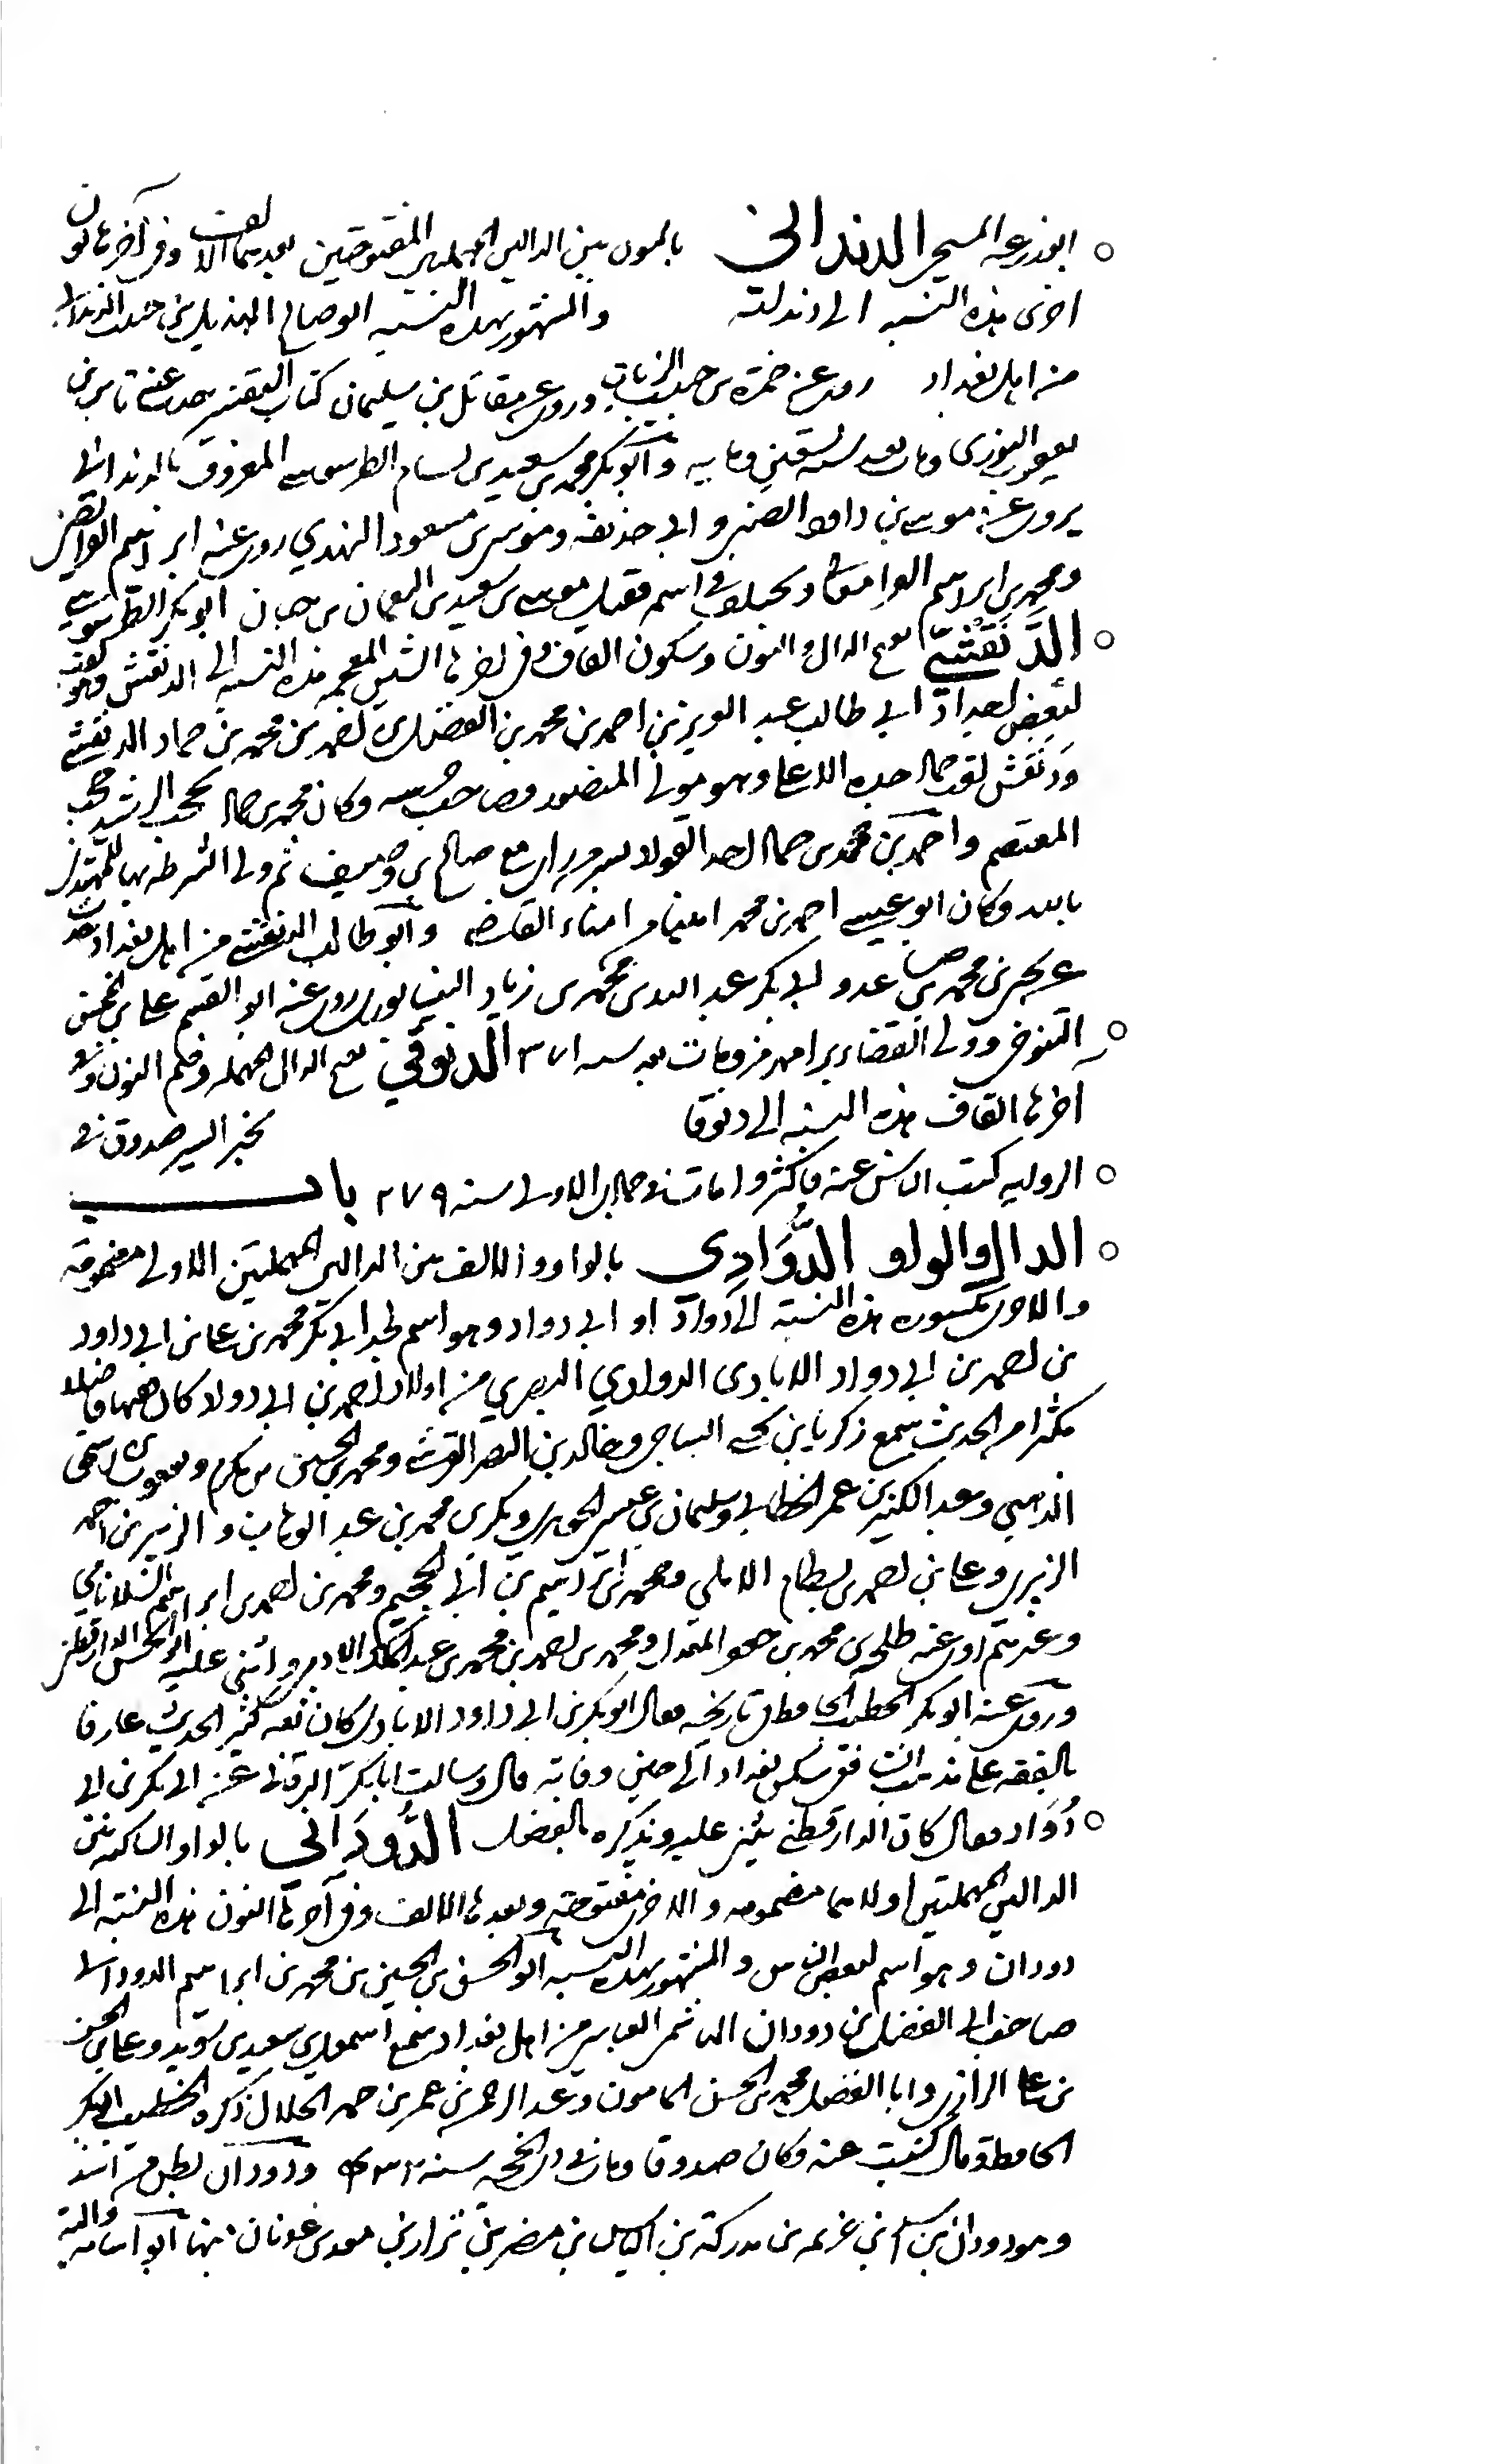 ابو زرعه المسيحي الدنداني بالنون بين الدالين المهملتين المفتوحتين بعدهما الالف وفي آخرها نون
اخرى هذه النسبه الى دندانه والمشهور بهذه النسبه ابو صالح الهذيل بن حبيب الدنداني
من اهل بغداد روى عن حمزة بن حبيب الزيات وروى عن مقاتل بن سليمان كتاب التفسير حدث عنه ثابت بن
يعقوب التوزي ومات بعد سنة تسعين ومايه وابو بكر محمد بن سعيد بن بسام الطرسوسي المعروف بالدنداني
يروي عن موسى بن داود الضبي وابي حذيفه وموسى بن مسعود النهدي روى عنه ابراهيم
ومحمد بن ابراهيم ويختلف في اسمه فقيل موسى بن سعيد بن النعمان بن حبان ابو بكر الطرسوسي
الدَّنَقْشي بفتح الدال والنون وسكون القاف وفي اخرها الشين المعجمه هذه النسبه الى الدنقش وهو لقب
لبعض اجداد ابي طالب عبد العزيز بن احمد بن محمد بن الفضل بن احمد بن محمد بن حماد الدنقشي
ودنقش لقب حماد جده الاعلى وهو مولى المنصور وصاحب حرسه وكان محمد بن حماد يحجب الرشيد ثم حجب
المعتصم واحمد بن محمد بن حماد احد القواد بسر من راى مع صالح بن وصيف ثم ولي الشرطه بها للمهتدي
بالله وكان ابو عيسى احمد بن محمد امينا من امناء القاضي وابو طالب الدنقشي من اهل بغداد حدث
عن بحر بن محمد بن وابي بكر عبد الله بن محمد بن زياد النيسابوري روى عنه ابو القسم علي بن المحسن
التنوخي وولي القضاء برامهرمز ومات بعد سنه ٣٧١ الدنوقي بفتح الدال المهمله وضم النون وفي
اخرها القاف هذه النسبه الى دنوقا بخير السير صدوق في
الروايه كتب الناس عنه فاكثروا مات في جمادى الاولى سنه ٢٧٩ باب
الدال والواو الدُّوَادِي بالواو والالف بين الدالين المهملتين الاولى مضمومه
والاخرى مكسوره هذه النسبة الى دواد او ابي دواد وهو اسم لجد ابي بكر محمد بن علي بن ابي داود
بن احمد بن ابي دواد الايادي الدوادي البصري من اولاد احمد بن ابي دواد كان فقيها فاضلا
مكثرا من الحديث سمع زكريا بن يحيى الساجي وخالد بن النضر القرشي ومحمد بن الحسين بن مكرم ويعقوب بن اسحق
الذهبي وعبد الكبير بن عمر الخطابي وسليمان بن عيسى الجوهري وبكر بن محمد بن عبد الوهاب والزبير بن احمد
الزبيري وعلي بن احمد بن بسطام الابلي ومحمد بن ابراهيم بن ابي الجحيم ومحمد بن احمد بن ابراهيم الشلاثائي
وغيرهم روى عنه طلحه بن محمد بن جعفر المعدل ومحمد بن احمد بن محمد بن عبد الملك الادمي واثنى عليه ابو الحسن الدارقطني
وروى عنه ابو بكر الخطيب الحافظ في تاريخه فقال ابو بكر بن ابي داود الايادي كان ثقه كثير الحديث عارفا
بالفقه على مذهب الشافعي سكن بغداد الى حين وفاته قال وسالت ابا بكر البرقاني عن ابي بكر بن ابي
دُوَاد فقال كان الدارقطني يثني عليه ويذكره بالفضل الدُّودَاني بالواو الساكنه بين
الدالين المهملتين اولاهما مضمومه والاخرى مفتوحة وبعدها الالف وفي آخرها النون هذه النسبة الى
دودان وهو اسم لبعض الناس والمشهور بهذه النسبه ابو الحسن بن الحسين بن محمد بن ابراهيم الدوداني
صاحب ابي الفضل بن دودان الهاشمي العباسي من اهل بغداد سمع اسمعيل بن سعيد بن سويد وعلي بن الحسن
بن علي الرازي وابا الفضل محمد بن الحسن المامون وعبد الرحمن بن عمر بن حمه الخلال ذكره الخطيب ابو بكر
الحافظ وقال كتبت عنه وكان صدوقا ومات في ذي الحجه سنه ودودان بطن من اسد
وهو دودان بن اسد بن خزيمه بن مدركة بن الياس بن مضر بن نزار بن معد بن عدنان منها ابو اسامه والبة